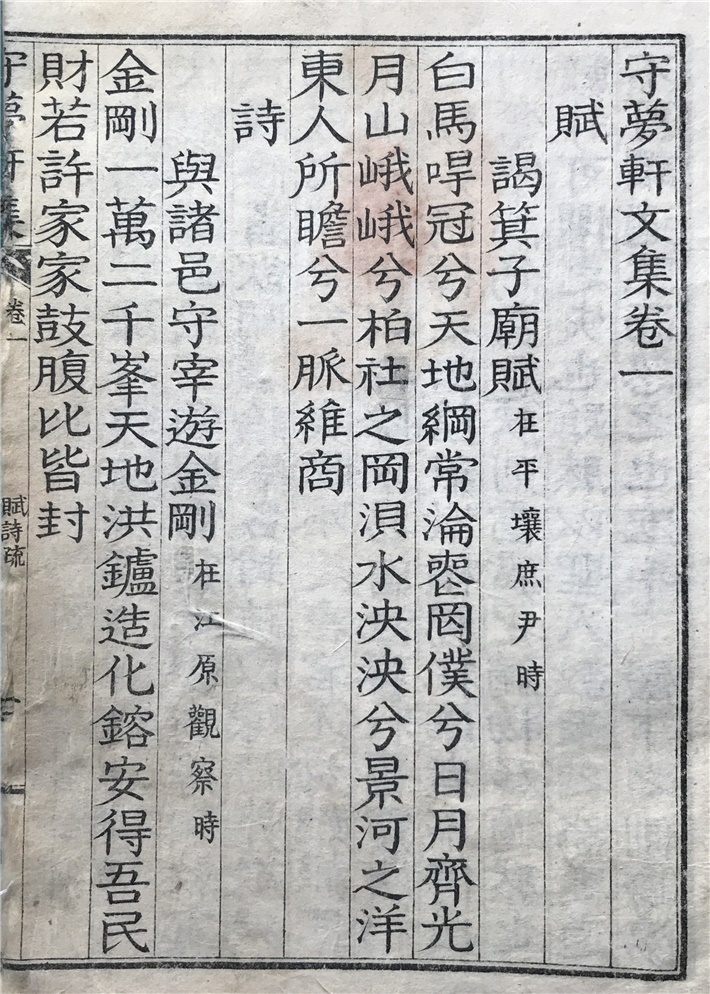 守夢軒文集卷一
賦
謁箕子廟賦 在平壤庶尹時
白馬哻冠兮天地綱常淪喪罔僕兮日月齊光
月山峨峨兮柏社之岡浿水泱泱兮景河之洋
東人所瞻兮一脈維商
詩
與諸邑守宰遊金剛 在江原觀察時
金剛一萬二千峯天地洪鑪造化鎔安得吾民
財若許家家鼓腹比皆封
守夢軒集 卷一 賦詩疏